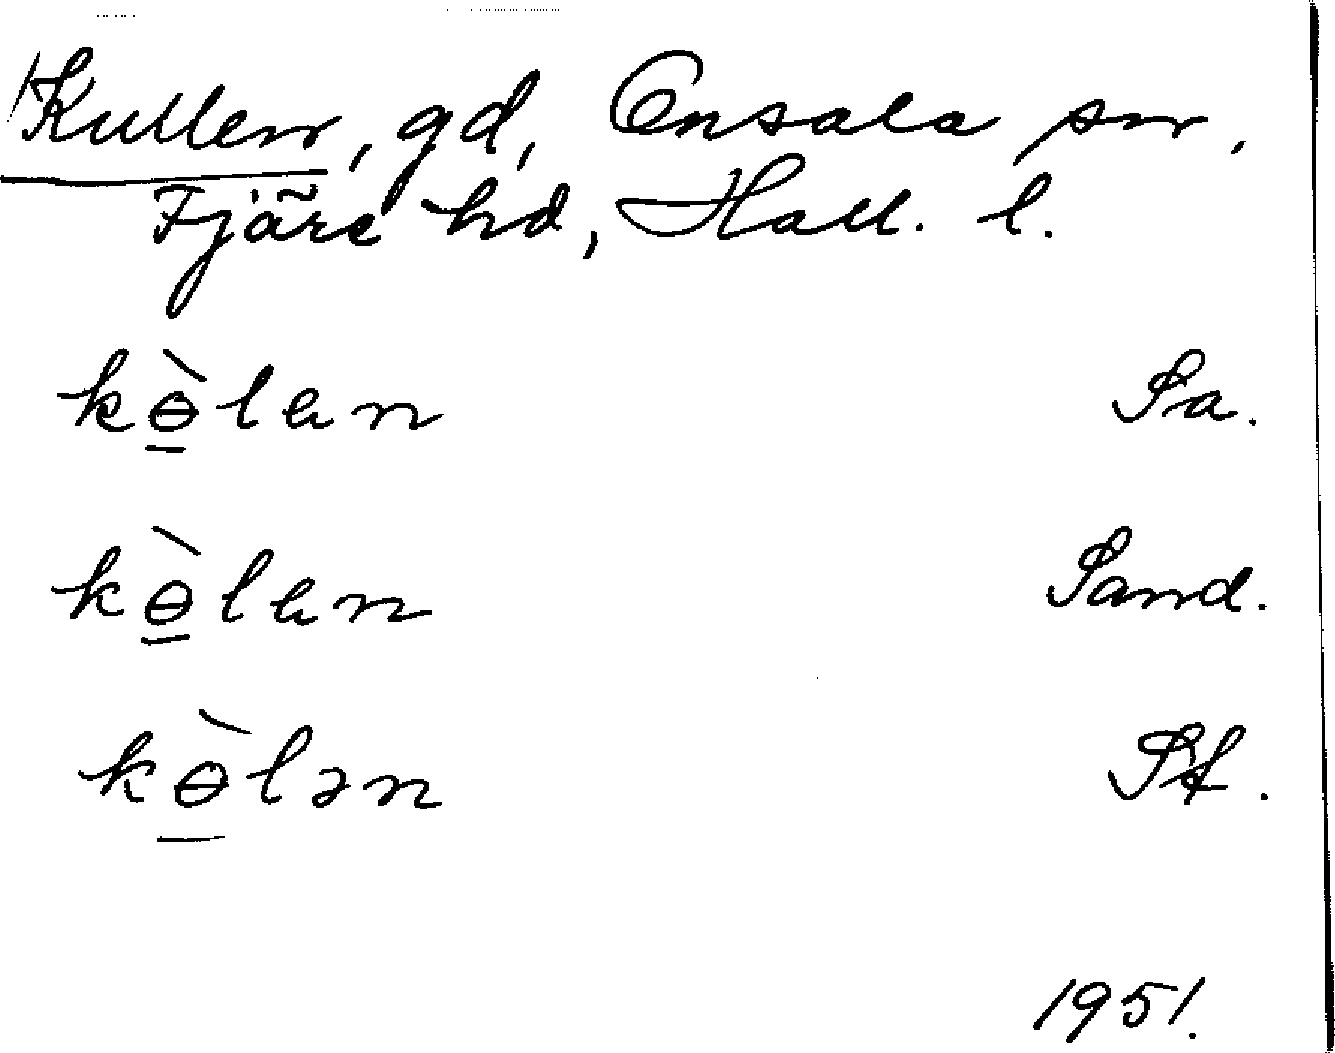 Kullen, gd, Onsala sn,
Fjäre hd, Hall. l.
kɵ̲̀lɐn Sa.
kɵ̲̀lɐn Sand.
kɵ̲̀lən Sf.
1951.